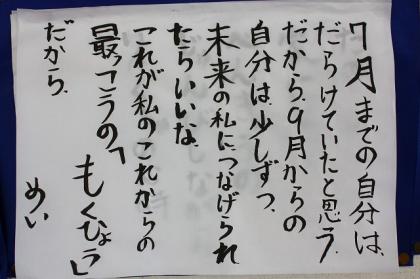 7月までの自分は、
だらけていたと思う。
だから、9月からの
自分は、少しずつ、
未来の私につなげられ
たらいいな。
これが私のこれからの
最っこうの「もくひょう」
だから。
めい